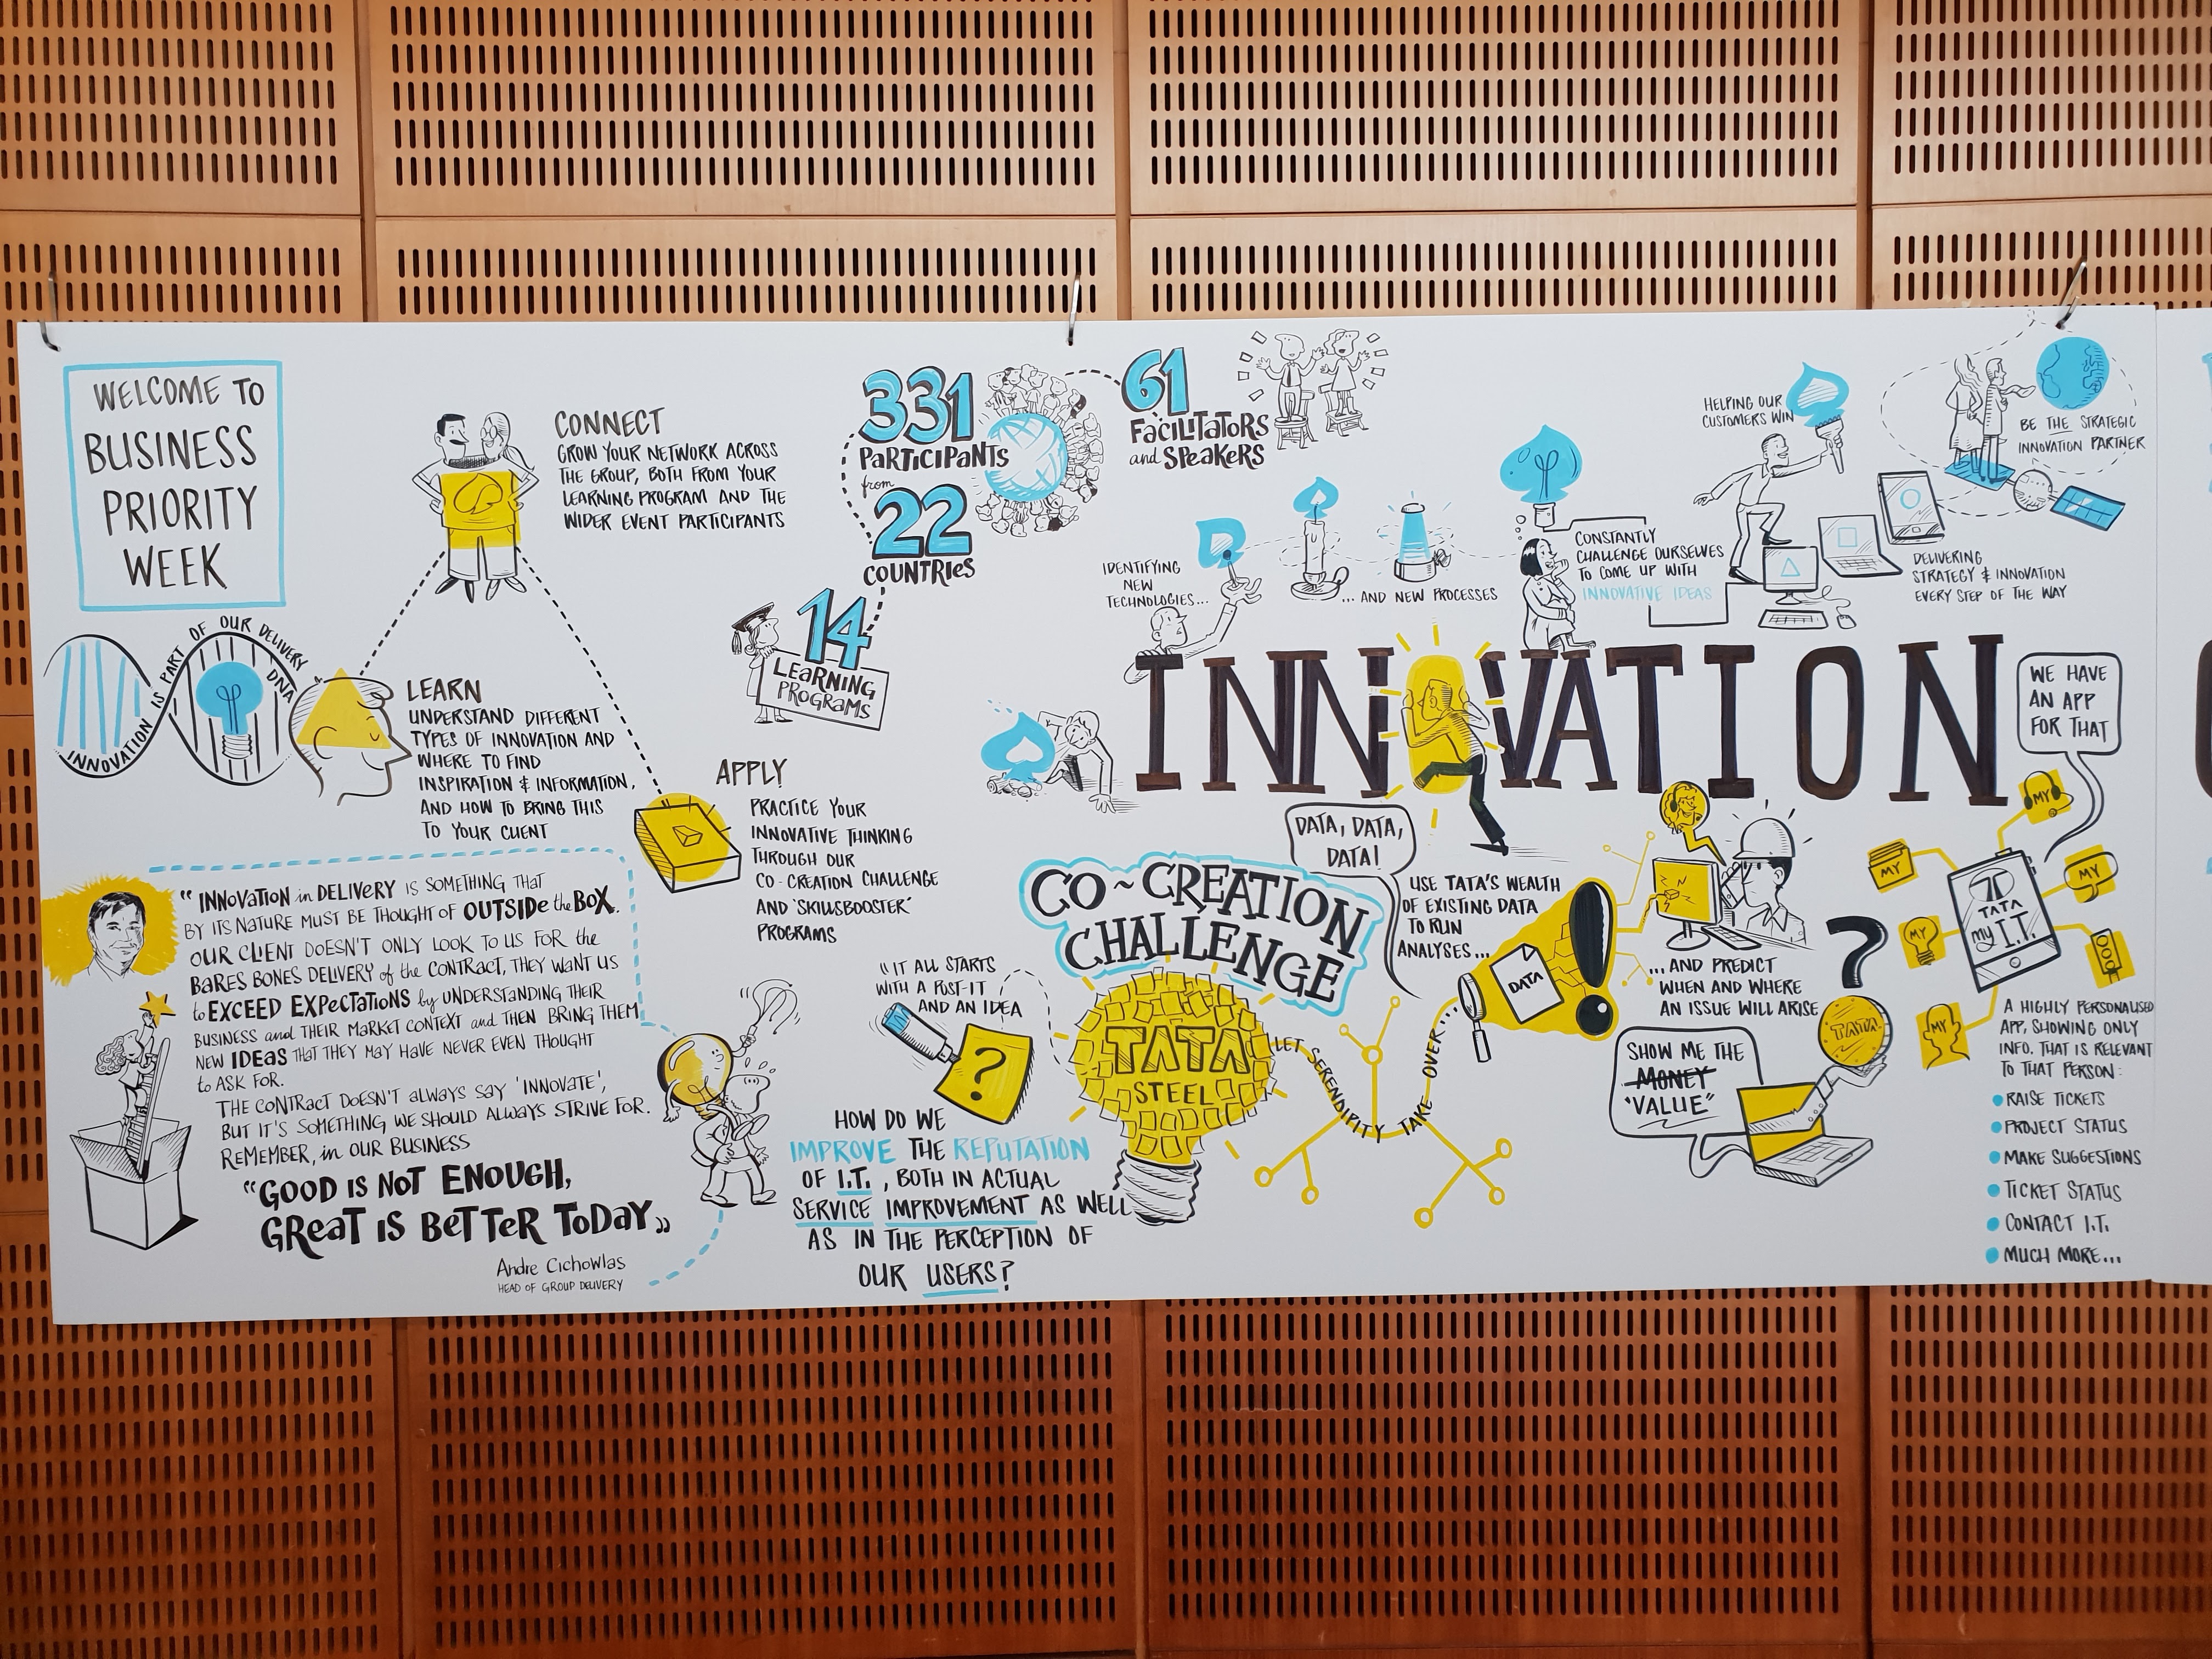 WELCOME TO
BUSINESS
PRIORITY
WEEK
INNOVATION IS PART OF OUR DELIVERY DNA
CONNECT
GROW YOUR NETWORK ACROSS
THE GROUP, BOTH FROM YOUR
LEARNING PROGRAM AND THE
WIDER EVENT PARTICIPANTS
LEARN
UNDERSTAND DIFFERENT
TYPES OF INNOVATION AND
WHERE TO FIND
INSPIRATION & INFORMATION,
AND HOW TO BRING THIS
TO YOUR CLIENT
APPLY
PRACTICE YOUR
INNOVATIVE THINKING
THROUGH OUR
CO-CREATION CHALLENGE
AND 'SKILLSBOOSTER'
PROGRAMS
331
PARTICIPANTS
from
22
COUNTRIES
61
FACILITATORS
and SPEAKERS
14
LEARNING
PROGRAMS
"INNOVATION in DELIVERY IS SOMETHING THAT
BY ITS NATURE MUST BE THOUGHT OF OUTSIDE the BOX.
OUR CLIENT DOESN'T ONLY LOOK TO US FOR the
BARES BONES DELIVERY of the CONTRACT, THEY WANT US
to EXCEED EXPECTATIONS by UNDERSTANDING THEIR
BUSINESS and THEIR MARKET CONTEXT and THEN BRING THEM
NEW IDEAS THAT THEY MAY HAVE NEVER EVEN THOUGHT
to ASK FOR.
THE CONTRACT DOESN'T ALWAYS SAY 'INNOVATE',
BUT IT'S SOMETHING WE SHOULD ALWAYS STRIVE FOR.
REMEMBER, in OUR BUSINESS
"GOOD IS NOT ENOUGH,
GREAT IS BETTER TODAY"
Andre Cichowlas
HEAD OF GROUP DELIVERY
IDENTIFYING
NEW
TECHNOLOGIES...
... AND NEW PROCESSES
CONSTANTLY
CHALLENGE OURSELVES
TO COME UP WITH
INNOVATIVE IDEAS
HELPING OUR
CUSTOMERS WIN
DELIVERING
STRATEGY & INNOVATION
EVERY STEP OF THE WAY
BE THE STRATEGIC
INNOVATION PARTNER
INNOVATION
"IT ALL STARTS
WITH A POST-IT
AND AN IDEA
?
HOW DO WE
IMPROVE THE REPUTATION
OF I.T., BOTH IN ACTUAL
SERVICE IMPROVEMENT AS WELL
AS IN THE PERCEPTION OF
OUR USERS?
CO-CREATION
CHALLENGE
TATA
STEEL
LET SERENDIPITY TAKE OVER...
DATA, DATA,
DATA!
USE TATA'S WEALTH
OF EXISTING DATA
TO RUN
ANALYSES...
DATA
!
... AND PREDICT
WHEN AND WHERE
AN ISSUE WILL ARISE
?
SHOW ME THE
MONEY
"VALUE"
TATA
WE HAVE
AN APP
FOR THAT
MY
MY
MY
MY
TATA
my I.T.
A HIGHLY PERSONALISED
APP, SHOWING ONLY
INFO. THAT IS RELEVANT
TO THAT PERSON:
RAISE TICKETS
PROJECT STATUS
MAKE SUGGESTIONS
TICKET STATUS
CONTACT I.T.
MUCH MORE...